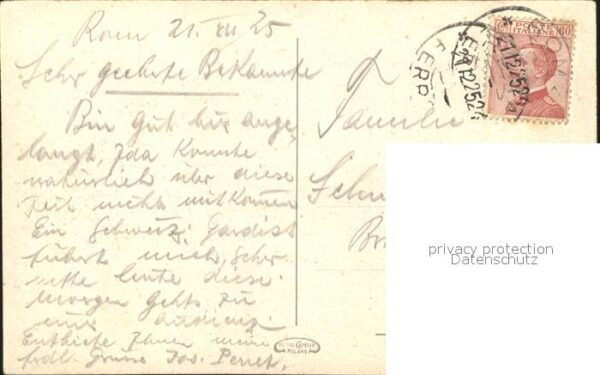 Rom 21. XII 25
Sehr geehrte Bekannte
Bin Gut hier ange-
langt, Ida Konnte
natürlich über diese
Zeit nicht mitkommen
Ein Schweiz. Gardist
führt mich, Sehr
nette leute diese.
Morgen Gehts zu
einer Audienz.
Entbiete Ihnen meine
frdl. Grüsse Jos. Perret.
Familie
POSTE ITALIANE 60
FERR
privacy protection
Datenschutz
MILANO